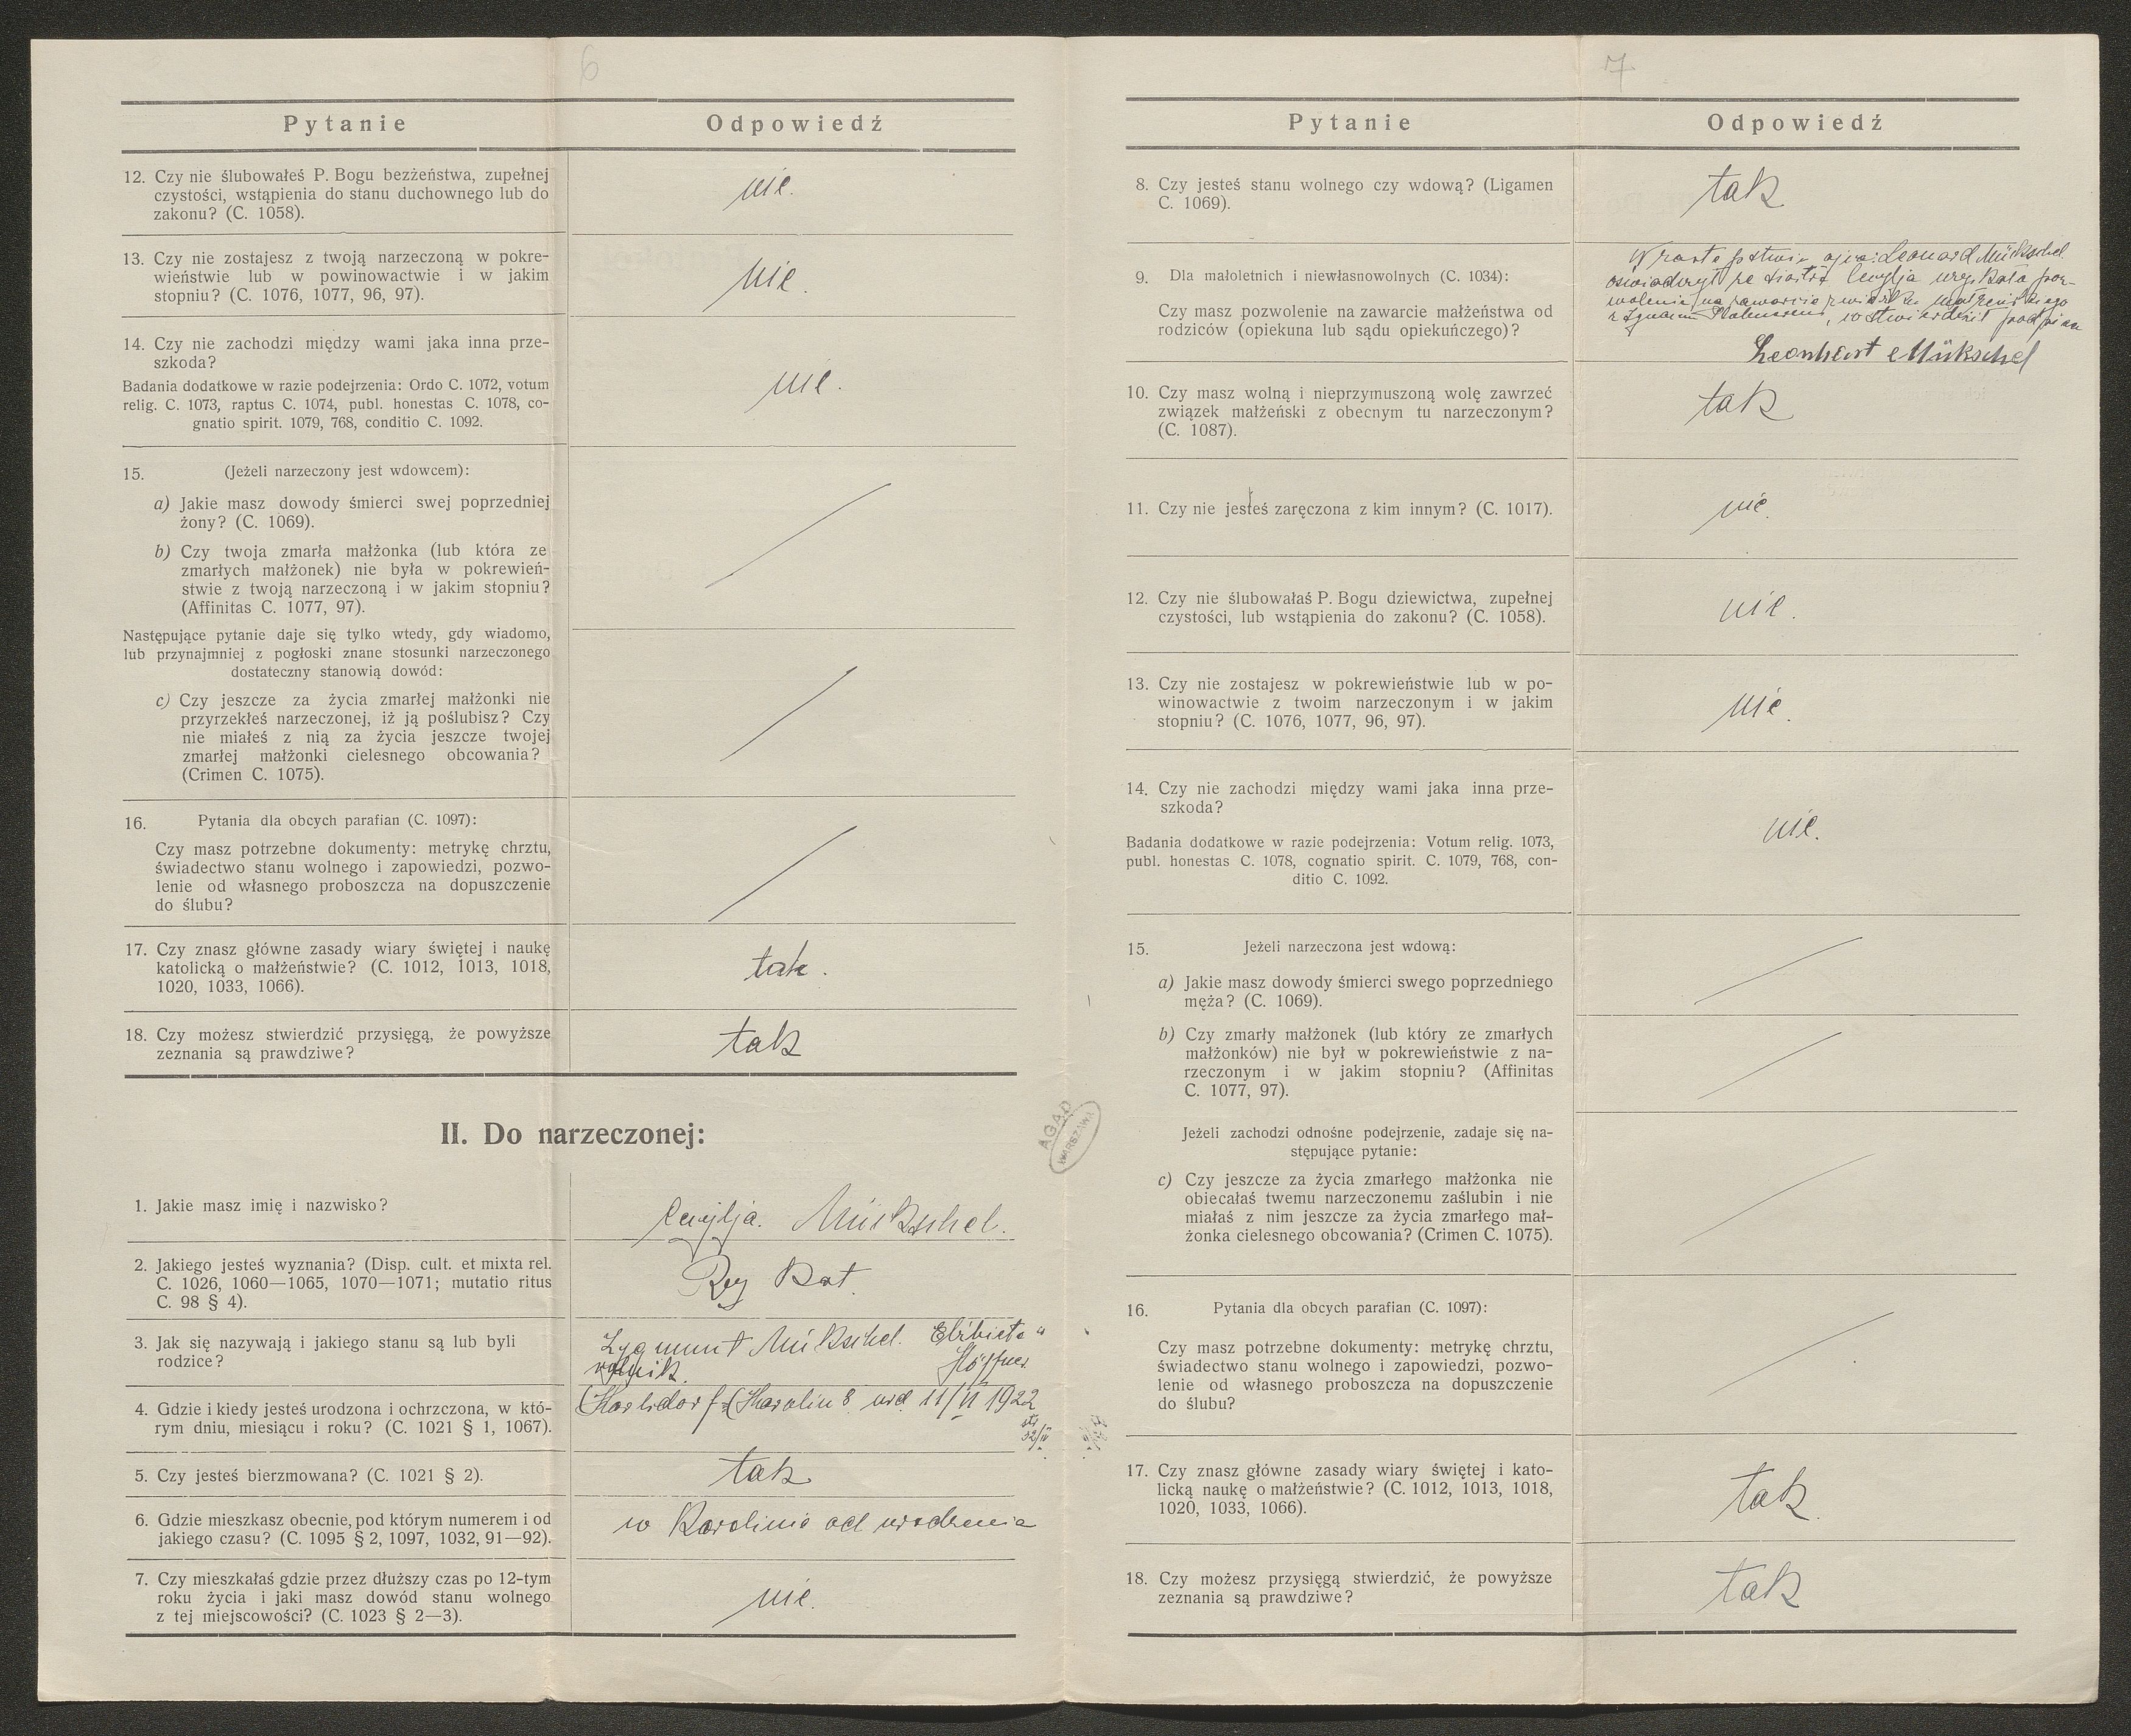 6
Pytanie
Odpowiedź
12. Czy nie ślubowałeś P. Bogu bezżeństwa, zupełnej
czystości, wstąpienia do stanu duchownego lub do
zakonu? (C. 1058).
nie.
13. Czy nie zostajesz z twoją narzeczoną w pokre-
wieństwie lub w powinowactwie i w jakim
stopniu? (C. 1076, 1077, 96, 97).
nie.
14. Czy nie zachodzi między wami jaka inna prze-
szkoda?
Badania dodatkowe w razie podejrzenia: Ordo C. 1072, votum
relig. C. 1073, raptus C. 1074, publ. honestas C. 1078, co-
gnatio spirit. 1079, 768, conditio C. 1092.
nie.
15. (Jeżeli narzeczony jest wdowcem):
a) Jakie masz dowody śmierci swej poprzedniej
żony? (C. 1069).
b) Czy twoja zmarła małżonka (lub która ze
zmarłych małżonek) nie była w pokrewień-
stwie z twoją narzeczoną i w jakim stopniu?
(Affinitas C. 1077, 97).
Następujące pytanie daje się tylko wtedy, gdy wiadomo,
lub przynajmniej z pogłoski znane stosunki narzeczonego
dostateczny stanowią dowód:
c) Czy jeszcze za życia zmarłej małżonki nie
przyrzekłeś narzeczonej, iż ją poślubisz? Czy
nie miałeś z nią za życia jeszcze twojej
zmarłej małżonki cielesnego obcowania?
(Crimen C. 1075).
16. Pytania dla obcych parafian (C. 1097):
Czy masz potrzebne dokumenty: metrykę chrztu,
świadectwo stanu wolnego i zapowiedzi, pozwo-
lenie od własnego proboszcza na dopuszczenie
do ślubu?
17. Czy znasz główne zasady wiary świętej i naukę
katolicką o małżeństwie? (C. 1012, 1013, 1018,
1020, 1033, 1066).
tak.
18. Czy możesz stwierdzić przysięgą, że powyższe
zeznania są prawdziwe?
tak
II. Do narzeczonej:
1. Jakie masz imię i nazwisko?
Cecylja. Mükschel.
2. Jakiego jesteś wyznania? (Disp. cult. et mixta rel.
C. 1026, 1060—1065, 1070—1071; mutatio ritus
C. 98 § 4).
Rzy Kat.
3. Jak się nazywają i jakiego stanu są lub byli
rodzice?
Zygmunt Mükschel. Elżbieta
rolnik.
4. Gdzie i kiedy jesteś urodzona i ochrzczona, w któ-
rym dniu, miesiącu i roku? (C. 1021 § 1, 1067).
Karlsdorf (Karolin 8 urd. 11/VI 1922
5. Czy jesteś bierzmowana? (C. 1021 § 2).
tak
6. Gdzie mieszkasz obecnie, pod którym numerem i od
jakiego czasu? (C. 1095 § 2, 1097, 1032, 91—92).
w Karolinie od urodzenia
7. Czy mieszkałaś gdzie przez dłuższy czas po 12-tym
roku życia i jaki masz dowód stanu wolnego
z tej miejscowości? (C. 1023 § 2—3).
nie.
AGAD
WARSZAWA
7
Pytanie
Odpowiedź
8. Czy jesteś stanu wolnego czy wdową? (Ligamen
C. 1069).
tak
9. Dla małoletnich i niewłasnowolnych (C. 1034):
Czy masz pozwolenie na zawarcie małżeństwa od
rodziców (opiekuna lub sądu opiekuńczego)?
W zastępstwie ojca: Leonard Mükschel
oświadczył że siostra Cecylja uzyskała poz-
wolenie na zawarcie związku małżeńskiego
z Ignacym, co stwierdził podpisem
Leonhart Mükschel
10. Czy masz wolną i nieprzymuszoną wolę zawrzeć
związek małżeński z obecnym tu narzeczonym?
(C. 1087).
tak
11. Czy nie jesteś zaręczona z kim innym? (C. 1017).
nie.
12. Czy nie ślubowałaś P. Bogu dziewictwa, zupełnej
czystości, lub wstąpienia do zakonu? (C. 1058).
nie.
13. Czy nie zostajesz w pokrewieństwie lub w po-
winowactwie z twoim narzeczonym i w jakim
stopniu? (C. 1076, 1077, 96, 97).
nie.
14. Czy nie zachodzi między wami jaka inna prze-
szkoda?
Badania dodatkowe w razie podejrzenia: Votum relig. 1073,
publ. honestas C. 1078, cognatio spirit. C. 1079, 768, con-
ditio C. 1092.
nie.
15. Jeżeli narzeczona jest wdową:
a) Jakie masz dowody śmierci swego poprzedniego
męża? (C. 1069).
b) Czy zmarły małżonek (lub który ze zmarłych
małżonków) nie był w pokrewieństwie z na-
rzeczonym i w jakim stopniu? (Affinitas
C. 1077, 97).
Jeżeli zachodzi odnośne podejrzenie, zadaje się na-
stępujące pytanie:
c) Czy jeszcze za życia zmarłego małżonka nie
obiecałaś twemu narzeczonemu zaślubin i nie
miałaś z nim jeszcze za życia zmarłego mał-
żonka cielesnego obcowania? (Crimen C. 1075).
16. Pytania dla obcych parafian (C. 1097):
Czy masz potrzebne dokumenty: metrykę chrztu,
świadectwo stanu wolnego i zapowiedzi, pozwo-
lenie od własnego proboszcza na dopuszczenie
do ślubu?
17. Czy znasz główne zasady wiary świętej i kato-
licką naukę o małżeństwie? (C. 1012, 1013, 1018,
1020, 1033, 1066).
tak
18. Czy możesz przysięgą stwierdzić, że powyższe
zeznania są prawdziwe?
tak